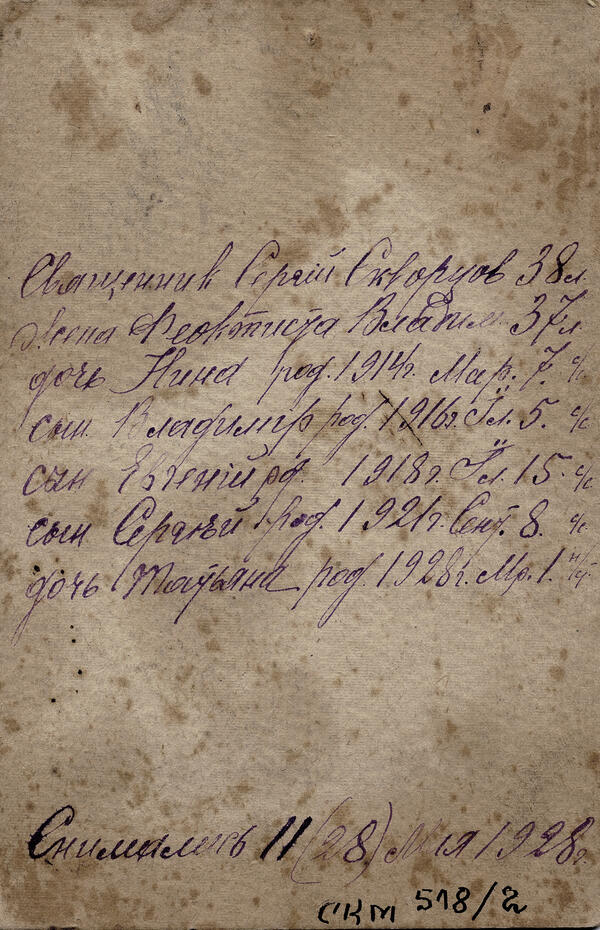 Священник Сергій Скворцов 38 л.
Жена Феоктиста Владим. 37 л.
дочь Нина род. 1914 г. Мар. 7. с/с
сын Владимир род. 1916 г. Іл. 5. с/с
сын Евгеній рд. 1918 г. Іл. 15. с/с
сын Сергѣй род. 1921 г. Сент. 8. с/с
дочь Татьяна род. 1928 г. Мр. 1. н/с
Снимались 11 (28) Мая 1928 г.
СКМ 518/2